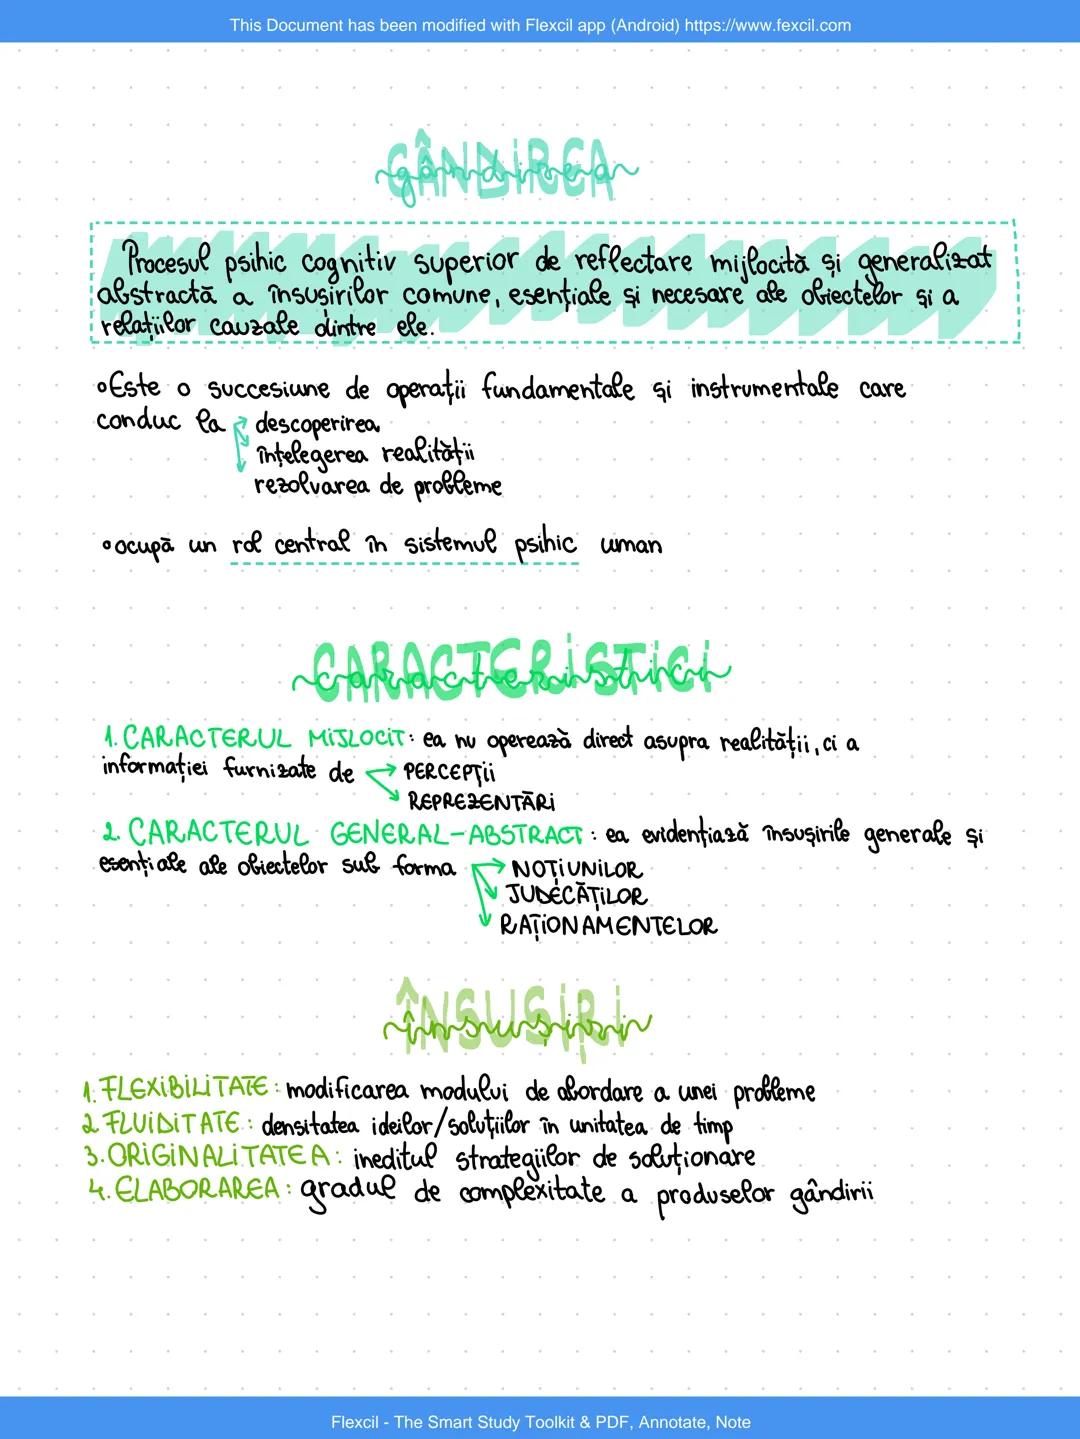 This Document has been modified with Flexcil app (Android) https://www.fexcil.com
GÂNDIREA
gândirea
Procesul psihic cognitiv superior de reflectare mijlocită și generalizat
abstractă a însușirilor comune, esențiale și necesare ale obiectelor și a
relațiilor cauzale dintre ele.
•Este o succesiune de operații fundamentale și instrumentale care
conduc la → descoperirea
înțelegerea realității
rezolvarea de probleme
•ocupă un rol central în sistemul psihic uman
CARACTERISTICI
caracteristici
1. CARACTERUL MIJLOCIT: ea nu operează direct asupra realității, ci a
informației furnizate de → PERCEPȚII
REPREZENTĂRI
2. CARACTERUL GENERAL-ABSTRACT: ea evidențiază însușirile generale și
esențiale ale obiectelor sub forma → NOȚIUNILOR
JUDECĂȚILOR
RAȚIONAMENTELOR
ÎNSUȘIRI
însușiri
1. FLEXIBILITATE: modificarea modului de abordare a unei probleme
2 FLUIDITATE: densitatea ideilor/soluțiilor în unitatea de timp
3. ORIGINALITATEA: ineditul strategiilor de soluționare
4. ELABORAREA: gradul de complexitate a produselor gândirii
Flexcil - The Smart Study Toolkit & PDF, Annotate, Note